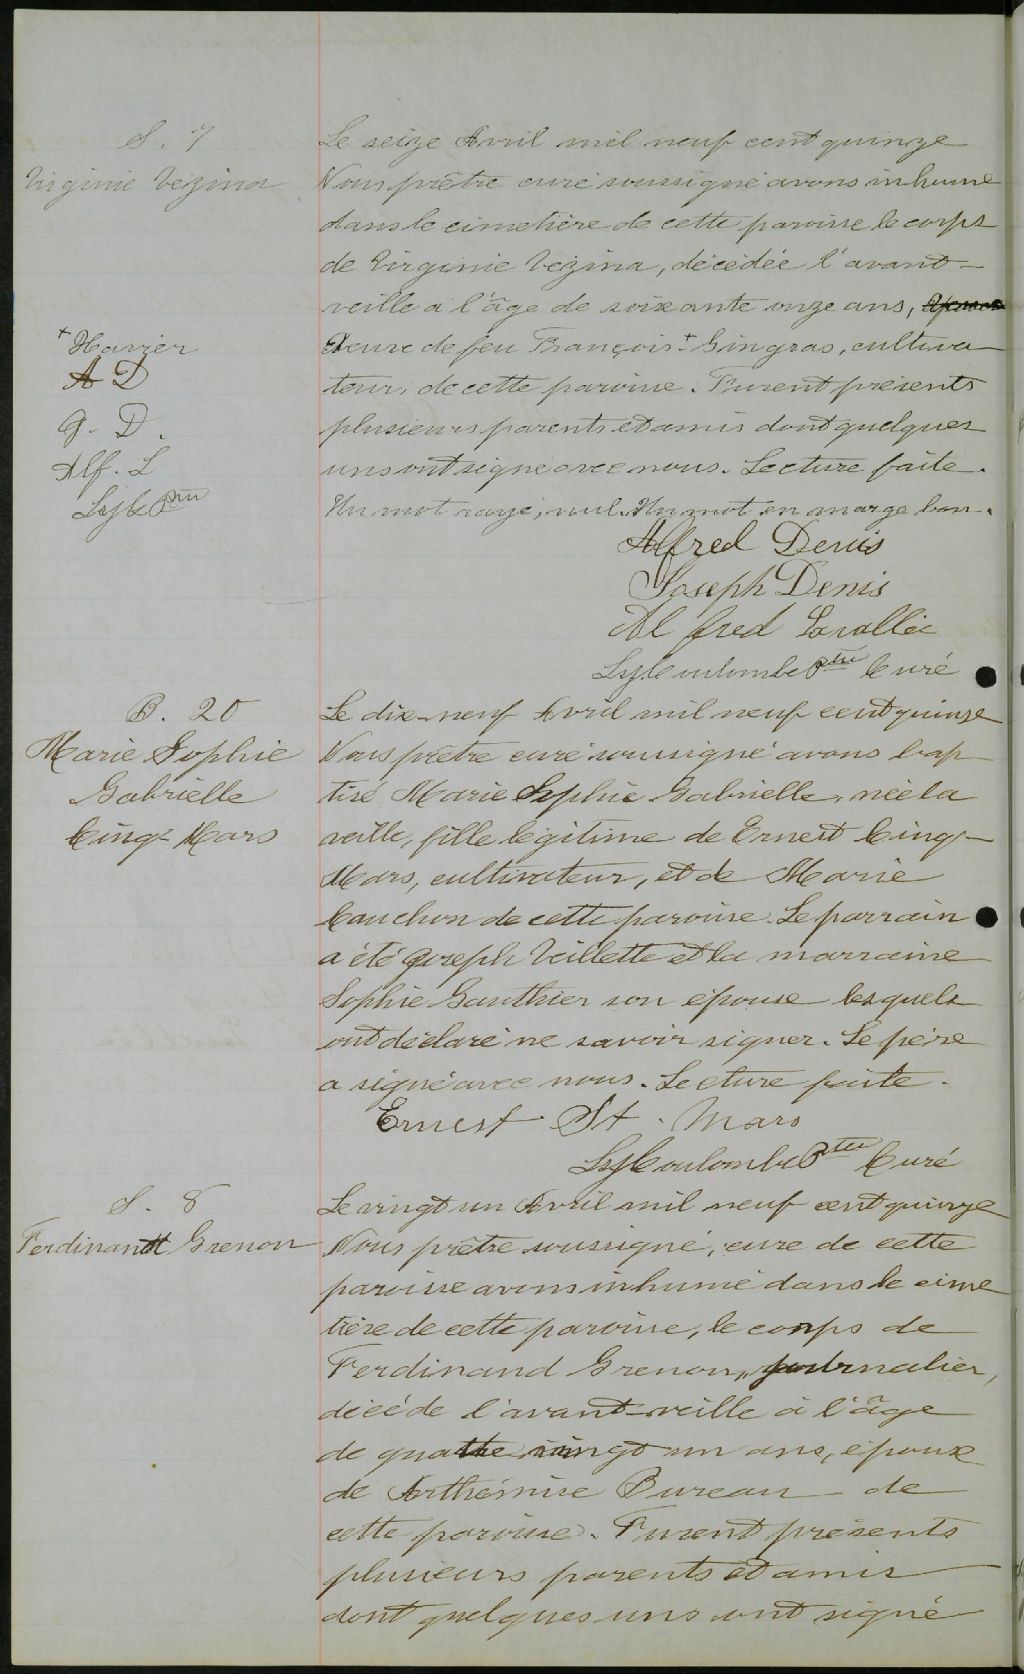 S. 7
Virginie Vezina
Le seize Avril mil neuf cent quinze
Nous prêtre curé soussigné avons inhumé
dans le cimetière de cette paroisse le corps
de Virginie Vezina, décédée l'avant-
veille a l'âge de soixante onze ans,
+ Xavier
A D
J. D.
Alf. L
Veuve de feu François + Gingras, cultiva-
teur, de cette paroisse. Furent présents
plusieurs parents et amis dont quelques
uns ont signé avec nous. Lecture faite.
Un mot rayé, nul. Un mot en marge bon.
Alfred Denis
Joseph Denis
Alfred Lavallée
Coulombe Ptre Curé
B. 20
Marie Sophie
Gabrielle
Cinq-Mars
Le dix-neuf Avril mil neuf cent quinze
Nous prêtre curé soussigné avons bap
tisé Marie Sophie Gabrielle, née la
veille, fille légitime de Ernest Cinq-
Mars, cultivateur, et de Marie
Cauchon de cette paroisse. Le parrain
a été Joseph Veillette et la marraine
Sophie Gauthier son épouse lesquels
ont déclaré ne savoir signer. Le père
a signé avec nous. Lecture faite.
Ernest St. Mars
Coulombe Ptre Curé
S. 8
Ferdinand Grenon
Le vingt un Avril mil neuf cent quinze
Nous prêtre soussigné, curé de cette
paroisse avons inhumé dans le cime
tière de cette paroisse, le corps de
Ferdinand Grenon, journalier,
décédé l'avant-veille à l'âge
de quatre vingt un ans, époux
de Arthémise Bureau de
cette paroisse. Furent présents
plusieurs parents et amis
dont quelques uns ont signé